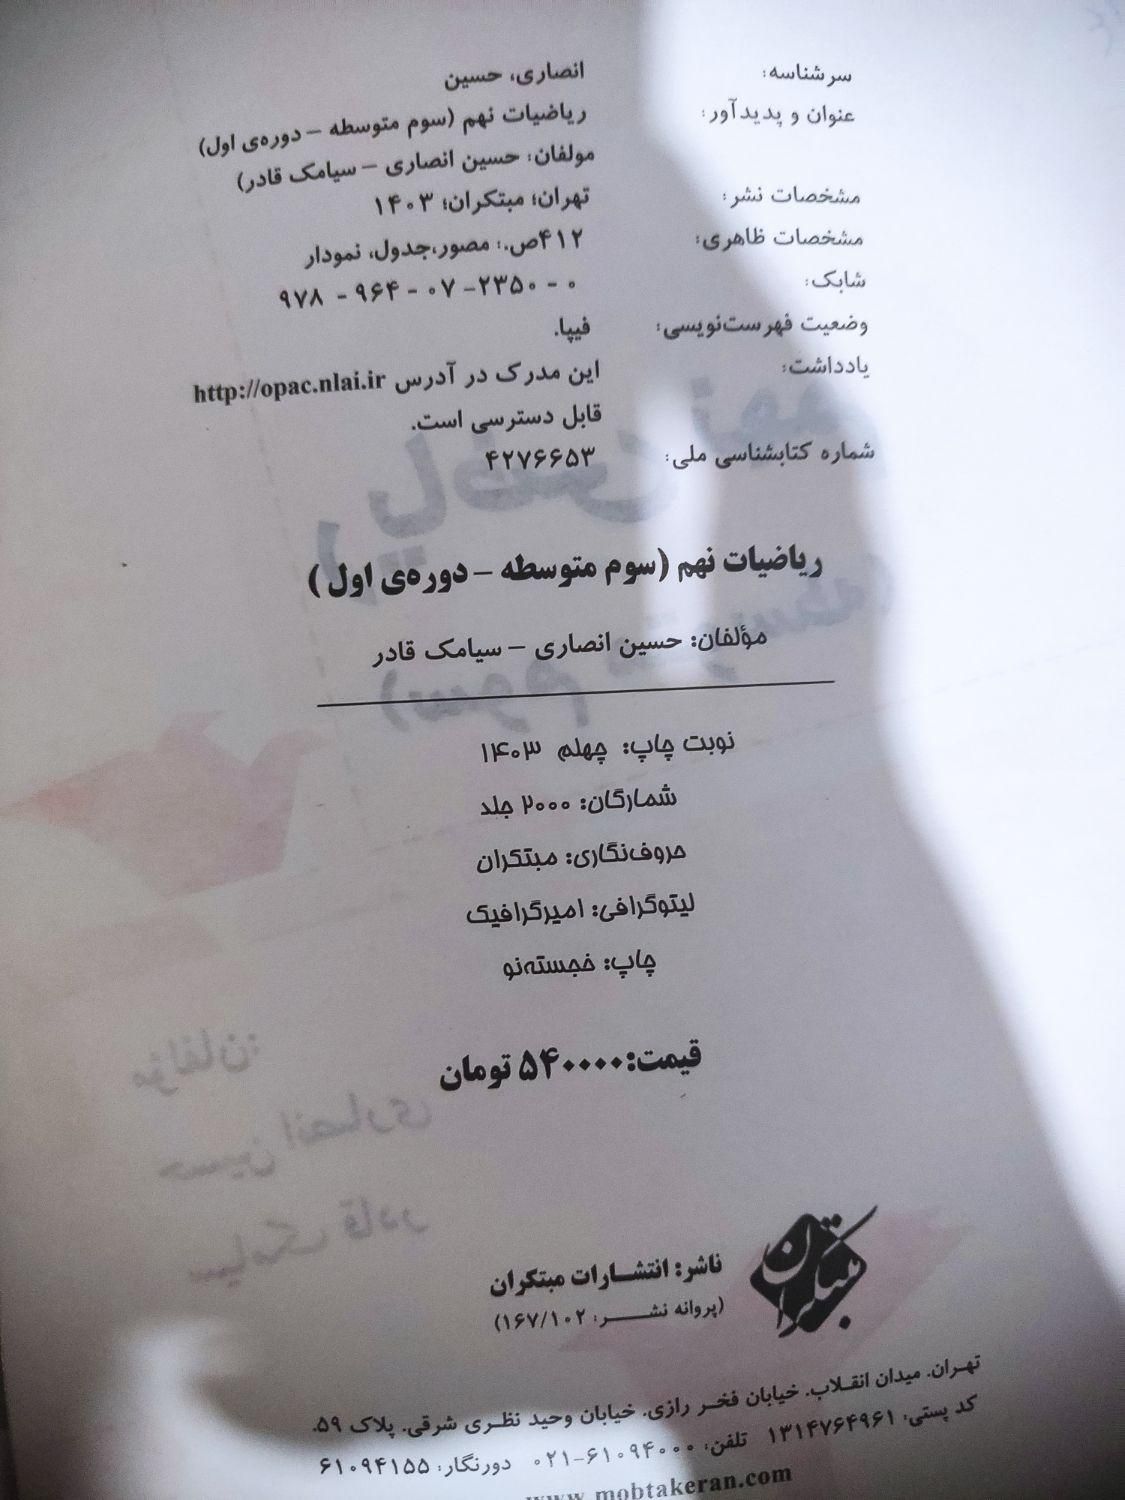 سرشناسه: انصاری، حسین
عنوان و پدیدآور: ریاضیات نهم (سوم متوسطه – دوره‌ی اول)
مولفان: حسین انصاری – سیامک قادر)
مشخصات نشر: تهران؛ مبتکران؛ ۱۴۰۳
مشخصات ظاهری: ۴۱۲ص.: مصور،جدول، نمودار
شابک: ۹۷۸ - ۹۶۴ - ۰۷ -۲۳۵۰ - ۰
وضعیت فهرست‌نویسی: فیپا.
یادداشت: این مدرک در آدرس http://opac.nlai.ir
قابل دسترسی است.
شماره کتابشناسی ملی: ۴۲۷۶۶۵۳
ریاضیات نهم (سوم متوسطه – دوره‌ی اول)
مؤلفان: حسین انصاری – سیامک قادر
نوبت چاپ: چهلم ۱۴۰۳
شمارگان: ۲۰۰۰ جلد
حروف‌نگاری: مبتکران
لیتوگرافی: امیرگرافیک
چاپ: خجسته‌نو
قیمت: ۵۴۰۰۰۰ تومان
مبتکران
ناشر: انتشـارات مبتکران
(پروانه نشـــر: ۱۶۷/۱۰۲)
تهـران. میدان انقـلاب. خیابان فخـر رازی. خیابان وحید نظـری شرقی. پلاک ۵۹.
کد پستی: ۱۳۱۴۷۶۴۹۶۱ تلفن: ۶۱۰۹۴۰۰۰-۰۲۱ دورنگار: ۶۱۰۹۴۱۵۵
www.mobtakeran.com